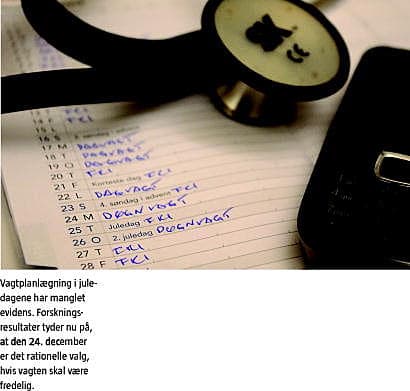 CE
14 F FRI
15 L
16 S søndag i advent
17 M DAGVAGT
18 T DAGVAGT
19 O
20 T FRI
21 F Korteste dag FRI
22 L DAGVAGT
23 S 4. søndag i advent FRI
24 M DØGNVAGT
25 T Juledag FRI
26 O 2. juledag DØGNVAGT
27 T FRI
28 F FRI
Vagtplanlægning i jule-
dagene har manglet
evidens. Forsknings-
resultater tyder nu på,
at den 24. december
er det rationelle valg,
hvis vagten skal være
fredelig.